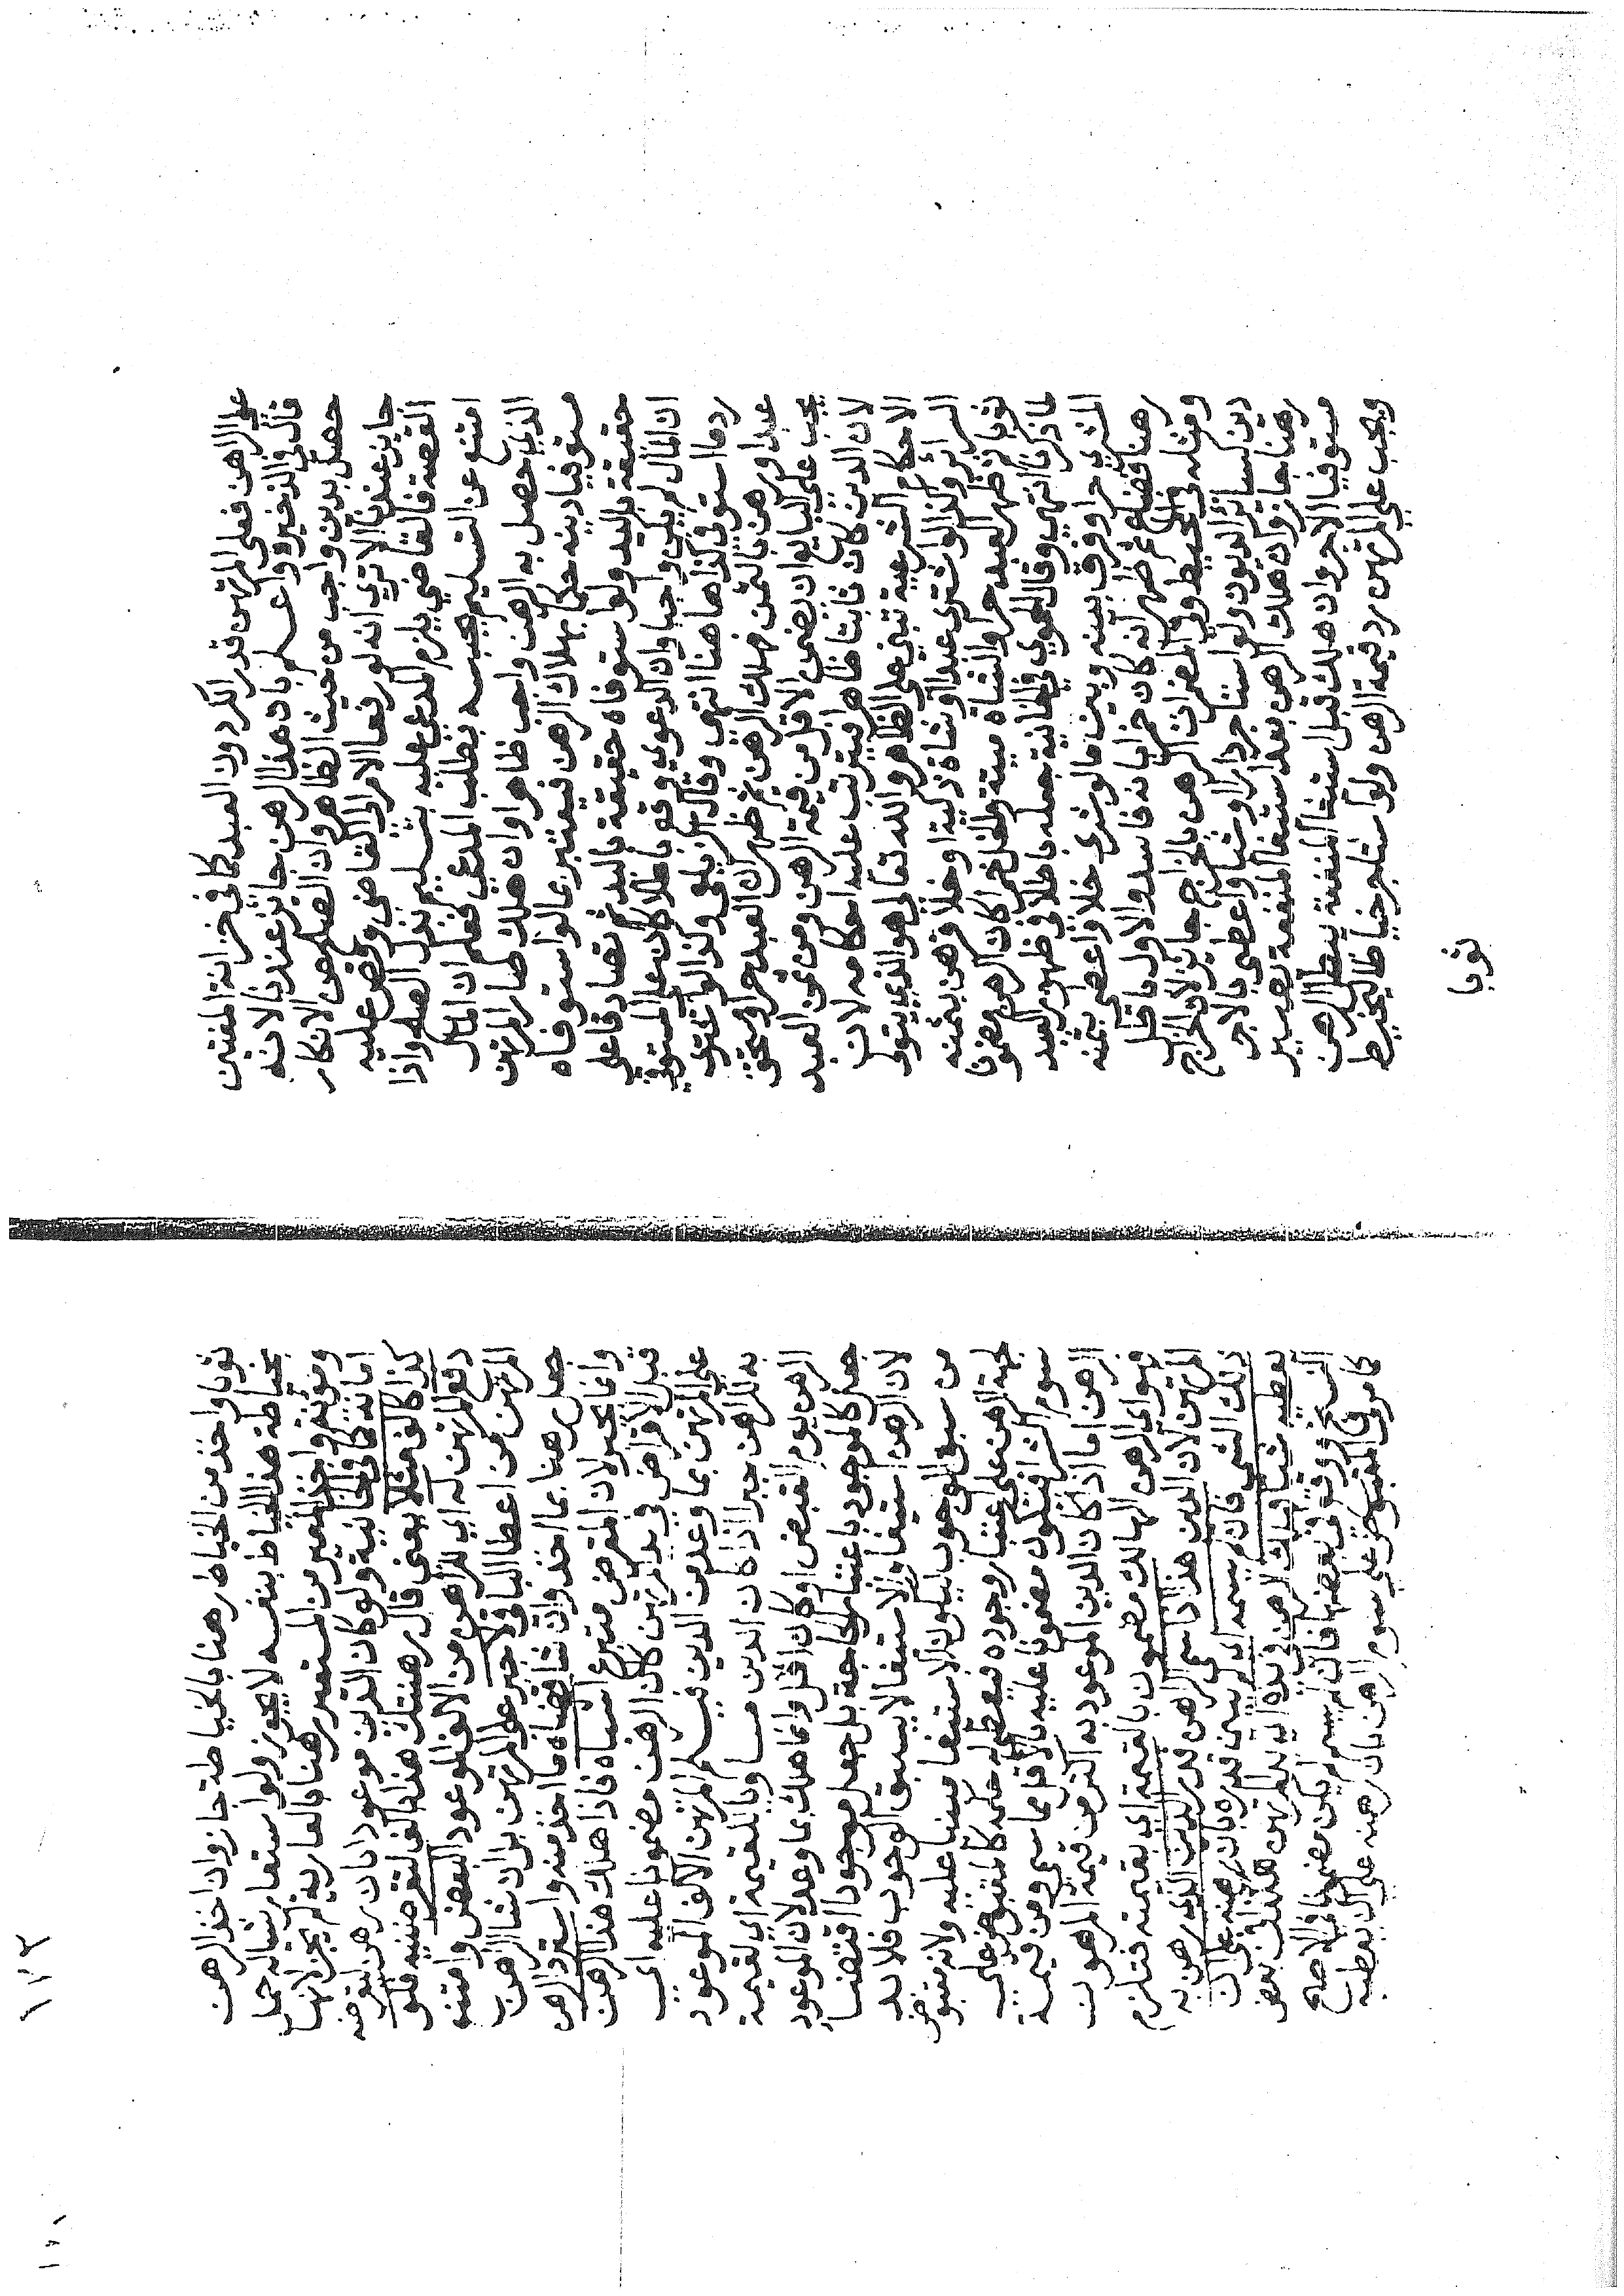 على الراهن فعلى المرتهن قدر الكر دون العبد كما في خزانة المفتين
قال في الذخيرة واعلم بان هذا الرهن جايز عندنا لانه
حصل بدين واجب من حيث الظاهر وان الصلح عن الانكار
جايز عندنا الا ترى انه لو رفعا الامر الى القاضي وقص عليه
القصة فالقاضي يلزم المدعى عليه بتسليم بدل الصلح واذا
امتنع عن التسليم يحبسه بطلب المدعي فعلم ان المال
الذي حصل به الرهن واجب ظاهرا وان هلك صار المرتهن
مستوفيا دينه حكما بهلاك الرهن فيعتبر بما لو استوفاه
حقيقة باليد ولو استوفاه حقيقة باليد ثم تصادقا على
ان المال لم يكن واجبا وان الدعوى وقع باطلا كان على المستوفي
رد ما استوفى كذا هاهنا انتهى وقال الزيلعي ولذا لو اشترى
عبدا ورهن بالثمن فهلك الرهن ثم ظهر ان العبد حر او مستحق
يجب على البايع ان يضمن الاقل من قيمة الرهن ومن ثمن العبد
لان الدين كان ثابتا ظاهرا فيترتب عليه احكامه لان
الاحكام الشرعية تبنى على الظاهر والله تعالى هو الذي يتولى
السرائر وكذا لو اشترى عبدا او شاة ذكية او خلا ورهن بثمنه
ثوبا ثم ظهر العبد حرا والشاة ميتة والخل خمرا كان الرهن مضمونا
لما ذكرنا انتهى وقال الحموي في الخانية جعله باطلا في ظهور العبد
المشري حرا وفرق بينه وبين ما لو شرى خلا واعطى بثمنه
رهنا فضاع ثم ظهر انه كان خمرا بانه فاسد والاول باطل
ومثله في المحيط وفي المضمرات الرهن بالخراج جايز لان الخراج
دين كسائر الديون ولو استاجر دارا او شيا واعطى بالاجر
رهنا جاز وان هلك الرهن بعد استيفاء المنفعة يصير
مستوفيا الاجر وان هلك قبل استيفاء المنفعة يبطل الرهن
ويجب على المرتهن رد قيمة الرهن ولو استاجر خياطا ليخيط
ثوبا
١١٢
ثوبا واخذ من الخياط رهنا بالخياطة جاز وان اخذ الرهن
بخياطة هذا الخياط بنفسه لا يجوز ولو استعار شيا له حمل
ومؤنة واخذ المعير من المستعير رهنا بالعارية لم يجز لانها
امانة كما في الخانية ولو كان الدين موعودا بان رهن ليقرضه
كذا كالف مثلا بمعنى قال رهنتك هذا بالف لتقرضنيه فلو
دفع المرتهن له اي للراهن من الالف الموعود البعض وامتنع
المرتهن من اعطا الباقي لا جبر على المرتهن بل ان شا الراهن
جعل رهنا بما اخذ وان شا قضاه ما اخذ منه واسترد الرهن
وانما لم يجبر لان المقرض متبرع اشباه فاذا هلك هذا الرهن
قبل الاقراض في يد المرتهن كان الرهن مضمونا عليه اي
على المرتهن بما وعد من الدين فيسلم المرتهن الالف الموعود
به للراهن جبرا اذا كان الدين مساويا للقيمة اي لقيمة
الرهن يوم القبض او كان اقل وانما هلك بما وعد لان الموعود
جعل كالموجود باعتبار الحاجة بل جعل موجودا اقتضا
لان الرهن استيفا والاستيفا لا يسبق الوجوب فلا بد
من سبق الوجوب ليكون الاستيفا مبنيا عليه ولانه مقبوض
لجهة الرهن على اعتبار وجوده فيعطى له حكمه كالمقبوض على
سوم الشرا فيكون مضمونا عليه بالاقل مما سمى ومن قيمة
الرهن اما اذا كان الدين الموعود به اكثر من قيمة المرهون
فهو اي الرهن الهالك مضمون بالقيمة اي بقيمته فتلزم
المرتهن لان الدين هذا اذا سمى الراهن قدر الدين الذي رهن به
ذلك الشي فان لم يسمه اي لم يبين قدره بان رهنه على ان
يعطيه شيا وهلك الرهن في يده اي المرتهن هل يضمن
كما مر في المقبوض على سوم الرهن بان رهنه على ان يعطيه